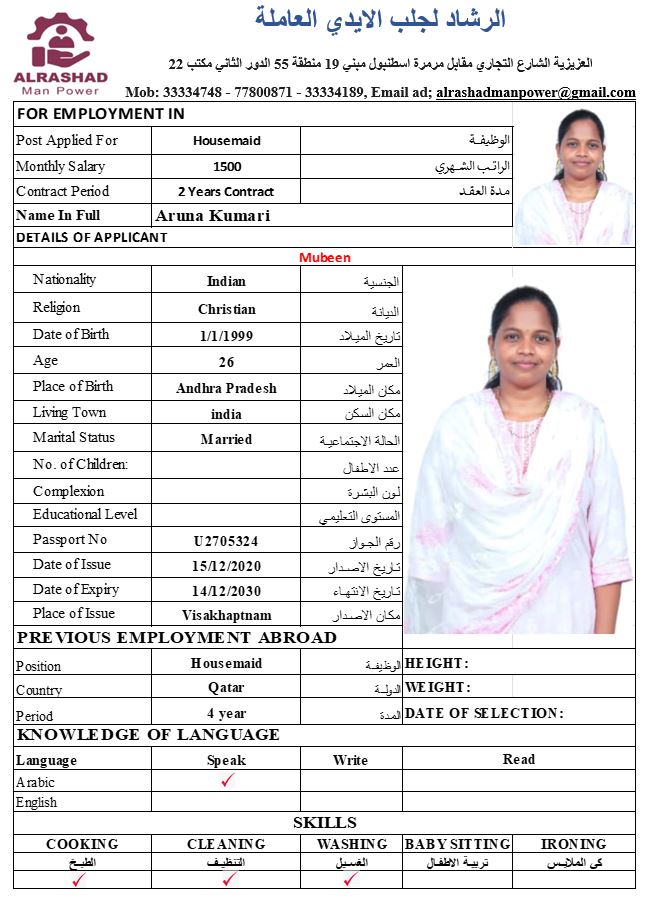 الرشاد لجلب الايدي العاملة
ALRASHAD
Man Power
العزيزية الشارع التجاري مقابل مرمرة اسطنبول مبني 19 منطقة 55 الدور الثاني مكتب 22
Mob: 33334748 - 77800871 - 33334189, Email ad; alrashadmanpower@gmail.com
FOR EMPLOYMENT IN
Post Applied For Housemaid الوظيفة
Monthly Salary 1500 الراتب الشهري
Contract Period 2 Years Contract مدة العقد
Name In Full Aruna Kumari
DETAILS OF APPLICANT
Mubeen
Nationality Indian الجنسية
Religion Christian الديانة
Date of Birth 1/1/1999 تاريخ الميلاد
Age 26 العمر
Place of Birth Andhra Pradesh مكان الميلاد
Living Town india مكان السكن
Marital Status Married الحالة الاجتماعية
No. of Children: عدد الاطفال
Complexion لون البشرة
Educational Level المستوى التعليمي
Passport No U2705324 رقم الجواز
Date of Issue 15/12/2020 تاريخ الاصدار
Date of Expiry 14/12/2030 تاريخ الانتهاء
Place of Issue Visakhaptnam مكان الاصدار
PREVIOUS EMPLOYMENT ABROAD
Position Housemaid الوظيفة HEIGHT:
Country Qatar الدولة WEIGHT:
Period 4 year المدة DATE OF SELECTION:
KNOWLEDGE OF LANGUAGE
Language Speak Write Read
Arabic ✓
English
SKILLS
COOKING CLEANING WASHING BABY SITTING IRONING
الطبخ التنظيف الغسيل تربية الاطفال كي الملابس
✓ ✓ ✓